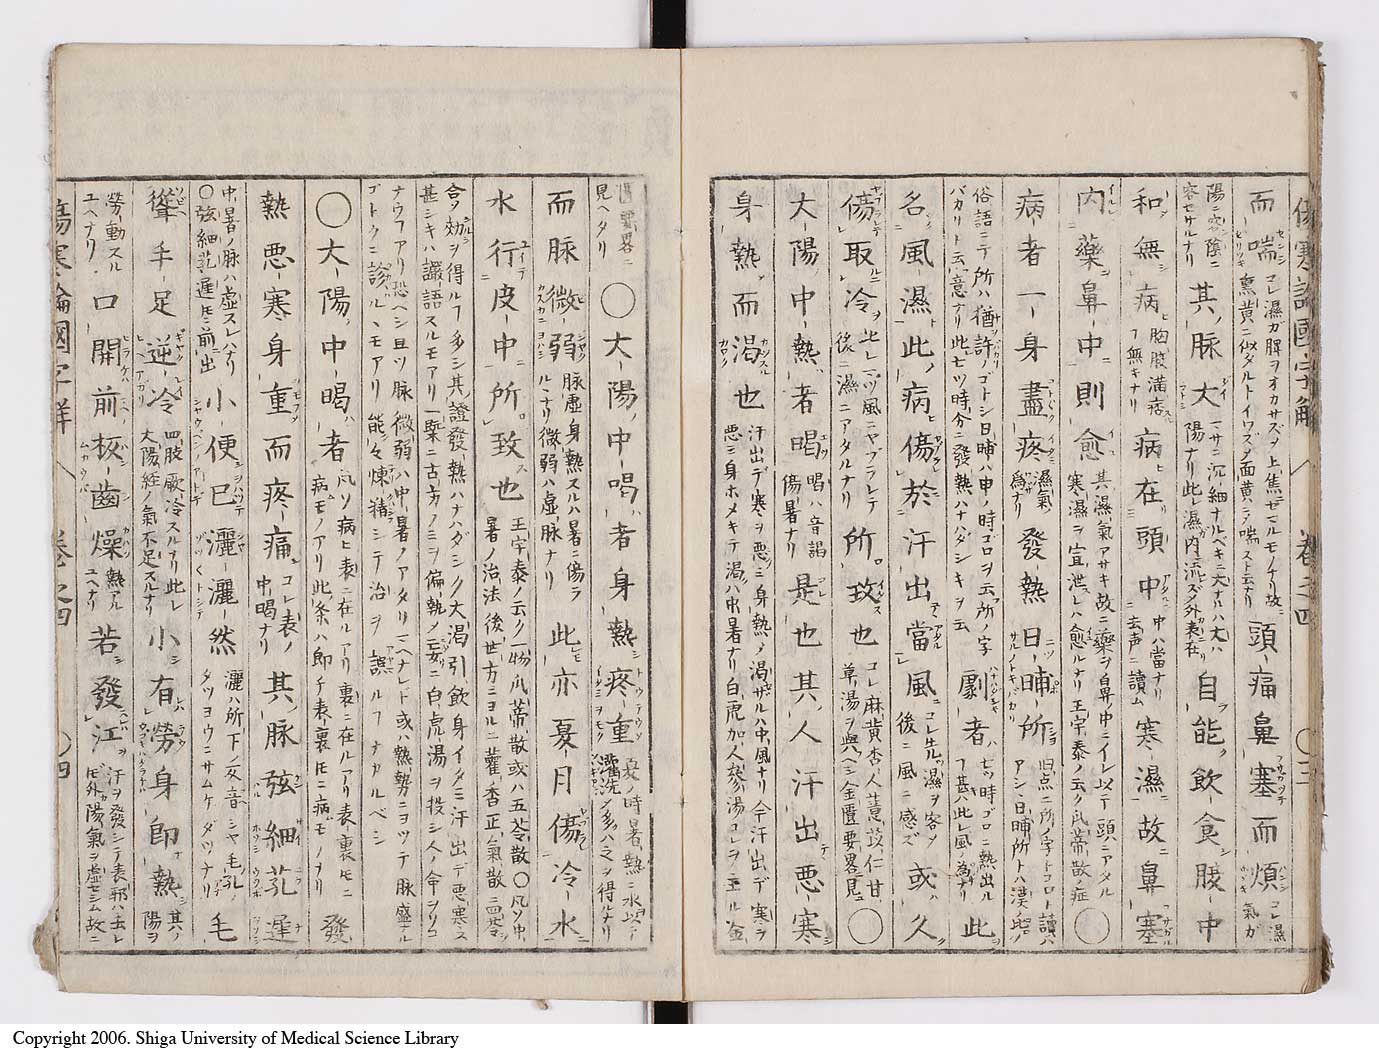 傷寒論國字解 巻之四 〇三
而喘 コレ濕ガ脾ヲオカサズメ上焦ゼマルモノナリ故ニ熏黄ニ似タルトイワズメ面黄ニメ喘スト云ナリ 頭痛鼻塞而煩 コレ濕氣ガ
陽ニ客メ陰ニ容セザルナリ 其脉大 ココニ沉細ナルベキニ大ナルハ大ハ陽ナリ此レ濕内ニ流レズメ外表ニ在 自能飲食腹中
和無病 胸腹滿痞フ無キナリ 病在頭中 中ハ當ナリ去声ニ讀ム 寒濕故鼻塞
内藥鼻中則愈 其濕氣アサキ故ニ藥ヲ鼻ノ中ニイレ以テ頭ニアタル寒濕ヲ宣泄スレハ愈ルナリ王宇泰ノ云ク瓜蒂散ノ症 〇
病者一身盡疼 濕氣ノ爲ナリ 發熱日晡所 旧点ニ所ノ字トコロト讀ハアシヽ日晡所トハ漢ノ時ノ
俗語ニテ所ハ猶許ノゴトシ日晡ハ申ノ時ゴロヲ云フ所ノ字バカリト云意ナリ此七ツ時分ニ發熱ハナハダシキヲ云 劇者 七ツ時ゴロニ熱出ルフ甚ハ此レ風ノ為ナリ 此
名風濕此病傷於汗出當風 コレ先ツ濕ヲ客メ後ニ風ニ感ズ 或久
傷取冷 此レ一ツハ風ニヤブラレテ後ニ濕ニアタルナリ 所致也 コレ麻黄杏人薏苡仁甘草湯ヲ與ベシ金匱要畧見ユ 〇
太陽中熱者暍 暍ハ音謁傷暑ナリ 是也其人汗出悪寒
身熱而渴也 汗出デ寒ヲ悪ミ身熱メ渴ザルハ中風ナリ今汗出デ寒ヲ悪ミ身ホメキテ渴ハ中暑ナリ白虎加人參湯コレヲ主ル金
匱要畧ニ見ヘタリ 〇太陽中暍者身熱疼重 夏ノ時暑熱ニ水ニテ灌洗フ多ハ之ヲ得ルナリ
而脉微弱 脉虚身熱スルハ暑ニ傷ラルヽナリ微弱ハ虚脉ナリ 此亦夏月傷冷水
水行皮中所致也 王宇泰ノ云ク一物瓜蒂散或ハ五苓散〇凡ソ中暑ノ治法後世方ニヨルニ藿香正氣散ニ五苓
合メ効ヲ得ルフ多シ其證發熱ハナハダシク大渴引飲身イタミ汗出デ悪寒ス甚シキハ譫語スルモアリ一槩ニ古方ノミヲ偏執メ妄ニ白虎湯ヲ投シ人ノ命ヲソコ
ナウフアリ恐ベシ且ツ脉微弱ハ中暑ノアタリマヘナレド或ハ熱勢ニヨツテ脉盛ナルゴトクニ診ルヽモアリ能々煉精シテ治ヲ誤ルフナカルベシ
〇太陽中暍者 凡ソ病ヒ表ニ在ルアリ裏ニ在ルアリ表裏氏ニ病モノアリ此条ハ即チ表裏氏ニ病モノナリ 發
熱悪寒身重而疼痛 コレ表ノ中暍ナリ 其脉弦細芤遲
中暑ノ脉ハ虚スレハナリ〇弦細芤遲氏ニ前ニ出 小便已灑灑然 灑ハ所下ノ反音シヤ毛ノ孔ノタツヨウニサムケダツナリ 毛
聳手足逆冷 四肢厥冷スルナリ此レ太陽経ノ氣不足スルナリ 小有勞身即熱 其ノ陽ヲ
勞動スルユヘナリ 口開前板齒燥 熱アルユヘナリ 若發汗 汗ヲ發シテ表邪ハ去レ氏外陽氣ヲ虚セシム故ニ
傷寒論國字解 巻之四 〇四